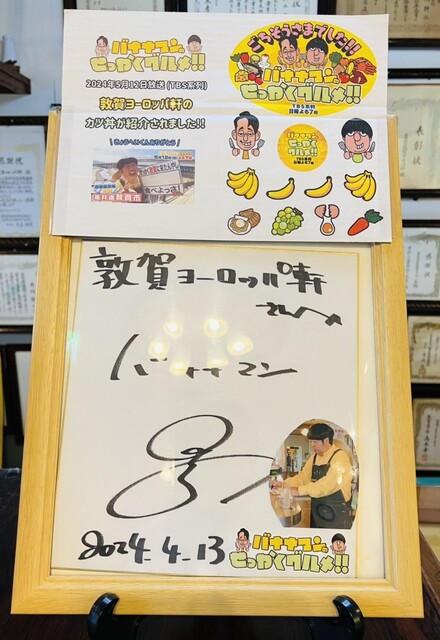 バナナマンの
せっかくグルメ!!
2024年5月12日放送 (TBS系列)
敦賀ヨーロッパ軒の
カツ丼が紹介されました!!
福井県敦賀市
食べよっさ!
ごちそうさまでした!!
バナナマンの
せっかくグルメ!!
TBS系列
日曜よる7時
バナナマンの
せっかくグルメ!!
敦賀ヨーロッパ軒
さんへ
バナナマン
2024.4.13
バナナマンの
せっかくグルメ!!
表彰状